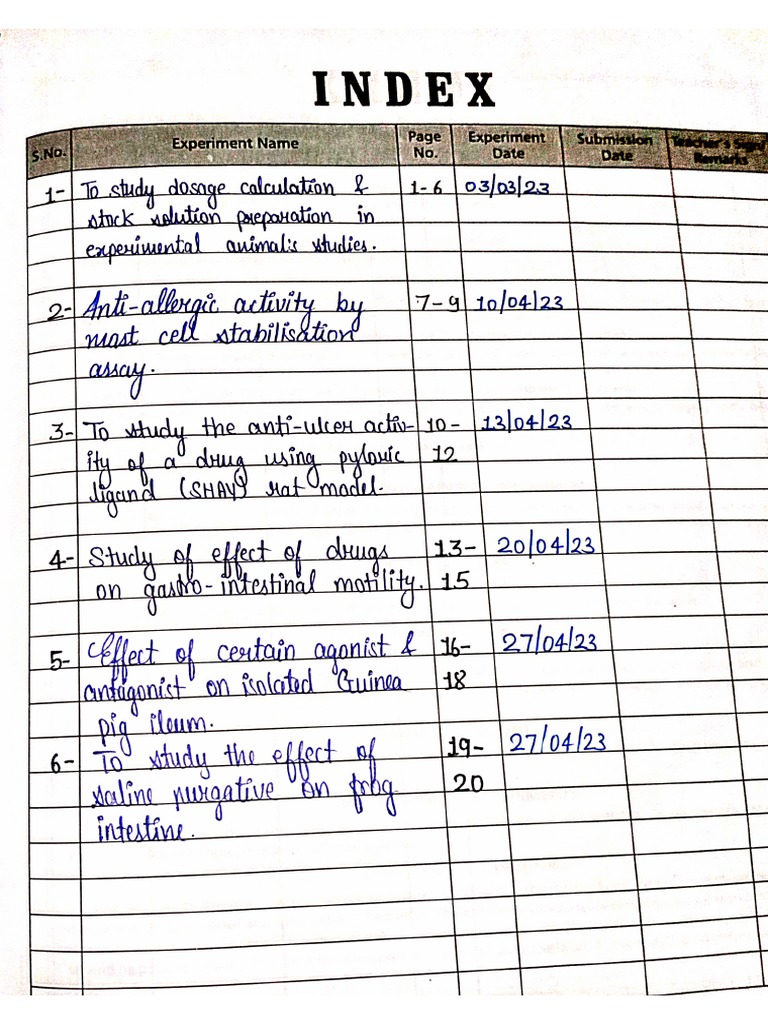 INDEX
S.No. Experiment Name Page No. Experiment Date Submission Date Teacher's Sign/ Remarks
1- To study dosage calculation & 1-6 03/03/23
stock solution preparation in
experimental animal's studies.
2- Anti-allergic activity by 7-9 10/04/23
mast cell stabilisation
assay.
3- To study the anti-ulcer activ- 10- 13/04/23
ity of a drug using pyloric 12
ligand (SHAY) rat model.
4- Study of effect of drugs 13- 20/04/23
on gastro-intestinal motility. 15
5- Effect of certain agonist & 16- 27/04/23
antagonist on isolated Guinea 18
pig ileum.
6- To study the effect of 19- 27/04/23
saline purgative on frog 20
intestine.